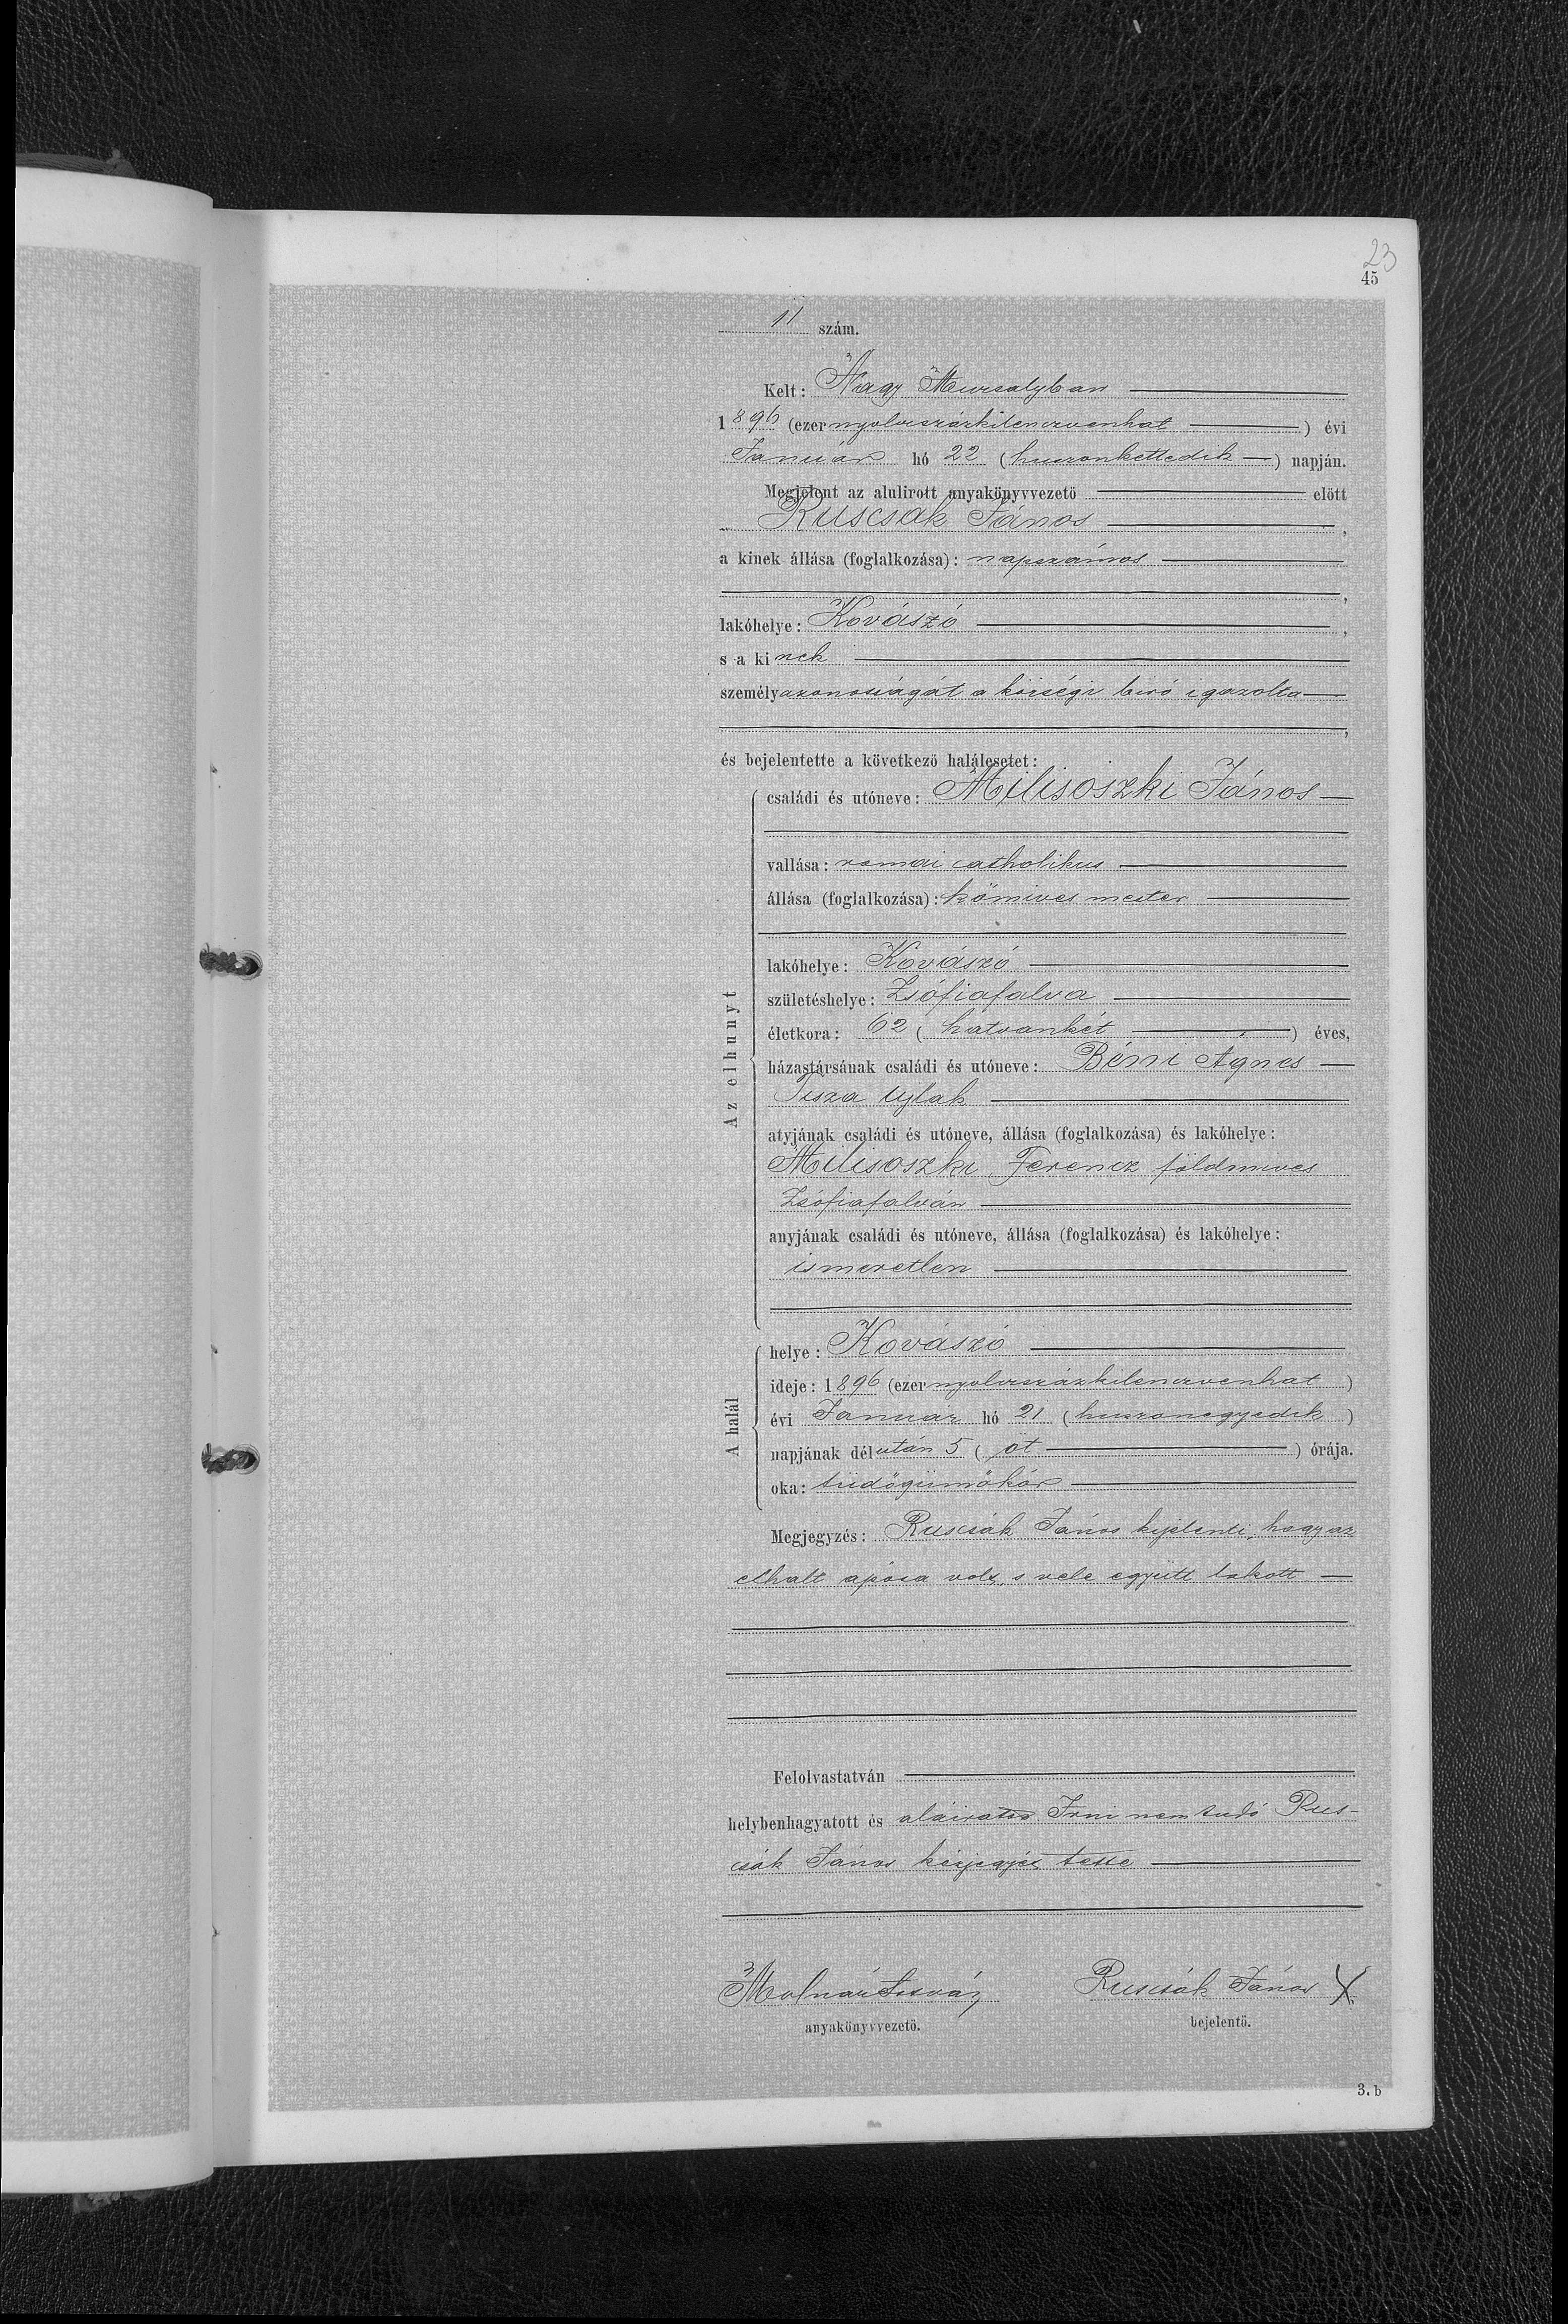 23
45
11 szám.
Kelt: Nagy Muzsalyban
1896 (ezernyolcszázkilenczvenhat) évi
Január hó 22 (huszonkettedik) napján.
Megjelent az alulirott anyakönyvvezető előtt
Ruscsák János,
a kinek állása (foglalkozása): napszámos
,
lakóhelye: Kovászó,
s a kinek
személyazonosságát a községi biró igazolta
,
és bejelentette a következő halálesetet:
Az elhunyt
családi és utóneve: Milisoszki János
vallása: romai catholikus
állása (foglalkozása): kőmives mester
lakóhelye: Kovászó
születéshelye: Zsófiafalva
életkora: 62 (hatvankét) éves,
házastársának családi és utóneve: Béni Ágnes
Tisza Ujlak
atyjának családi és utóneve, állása (foglalkozása) és lakóhelye:
Milisoszki Ferencz földmives
Zsófiafalván
anyjának családi és utóneve, állása (foglalkozása) és lakóhelye:
ismeretlen
A halál
helye: Kovászó
ideje: 1896 (ezernyolcszázkilenczvenhat)
évi Január hó 21 (huszonegyedik)
napjának délután 5 (öt) órája.
oka: tüdőgümőkór
Megjegyzés: Ruscsák János kijelenti, hogy az
elhalt apósa volt, s vele együtt lakott
Felolvastatván
helybenhagyatott és aláiratott. Irni nem tudó Rus-
csák János kézjegyét tette
Molnár István
anyakönyvvezető.
Ruscsák János X
bejelentő.
3. b